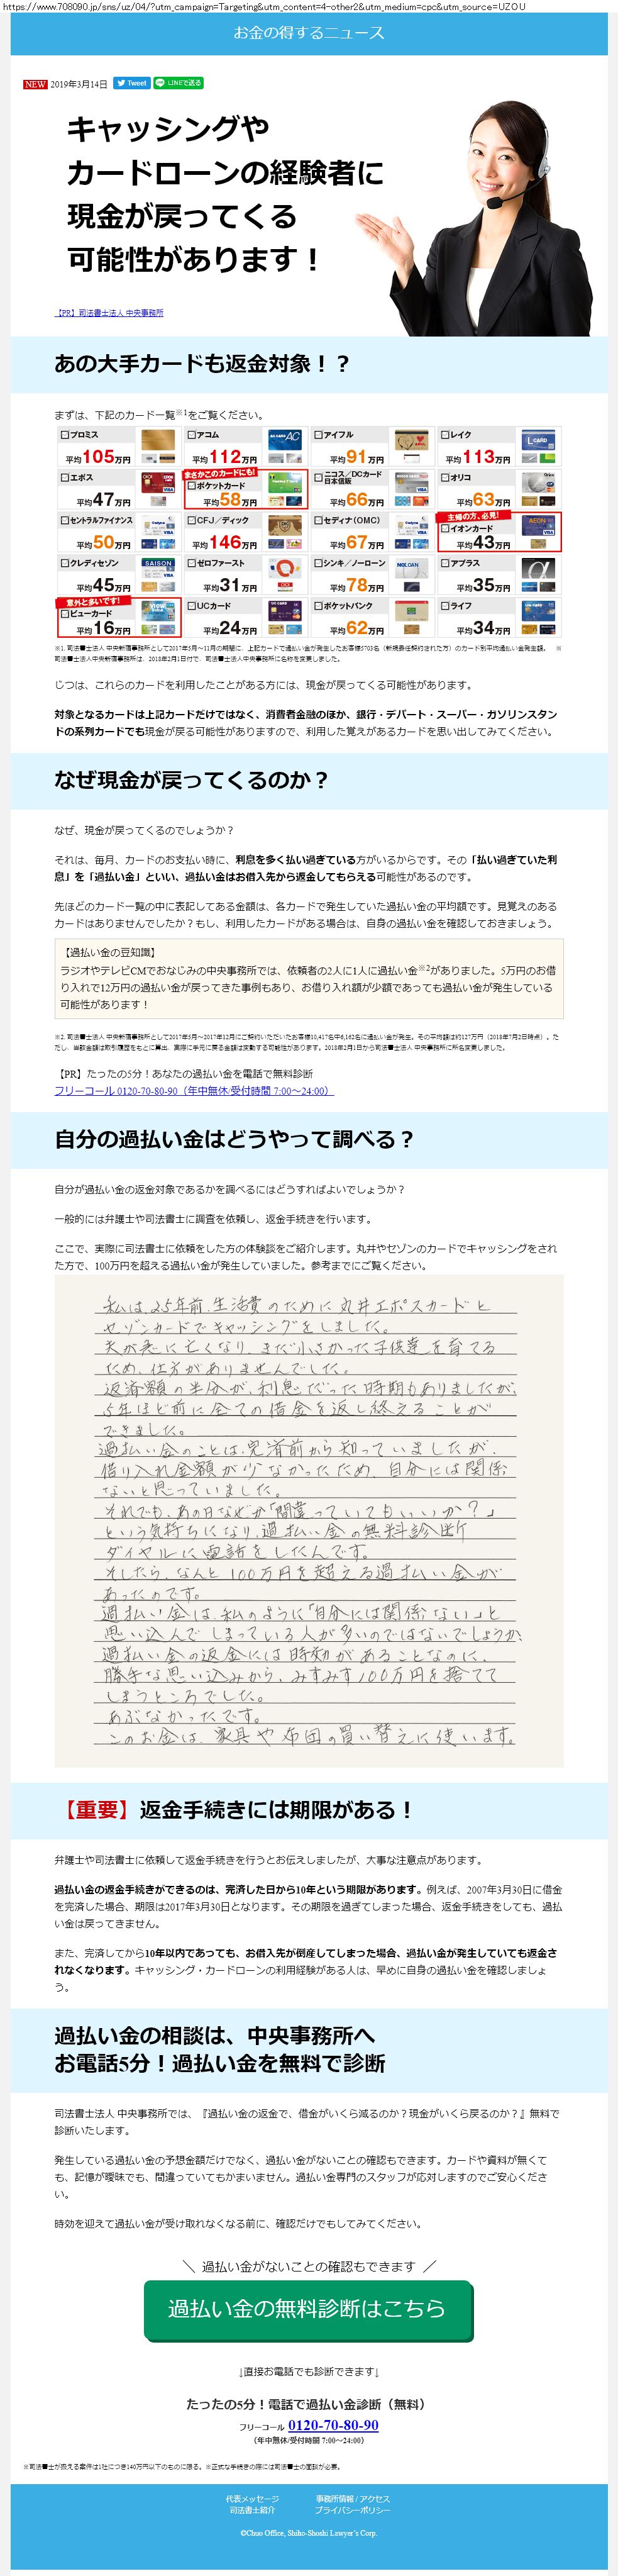 https://www.708090.jp/sns/uz/04/?utm_campaign=Targeting&utm_content=4-other2&utm_medium=cpc&utm_source=UZOU
お金の得するニュース
NEW 2019年3月14日 Tweet LINEで送る
キャッシングや
カードローンの経験者に
現金が戻ってくる
可能性があります！
【PR】司法書士法人 中央事務所
あの大手カードも返金対象！？
まずは、下記のカード一覧※1をご覧ください。
プロミス 平均105万円
アコム 平均112万円
アイフル 平均91万円
レイク 平均113万円
エポス 平均47万円
まさかこのカードにも!
ポケットカード 平均58万円
ニコス／DCカード 日本信販 平均66万円
オリコ 平均63万円
セントラルファイナンス 平均50万円
CFJ／ディック 平均146万円
セディナ（OMC） 平均67万円
主婦の方、必見！
イオンカード 平均43万円
クレディセゾン 平均45万円
ゼロファースト 平均31万円
シンキ／ノーローン 平均78万円
アプラス 平均35万円
意外と多いです！
ビューカード 平均16万円
UCカード 平均24万円
ポケットバンク 平均62万円
ライフ 平均34万円
※1. 司法■士法人 中央新宿事務所として2017年5月～11月の期間に、上記カードで過払い金が発生したお客様5703名（新規委任契約された方）のカード別平均過払い金発生額。 ※
司法■士法人中央新宿事務所は、2018年2月1日付で、司法■士法人中央事務所に名称を変更しました。
じつは、これらのカードを利用したことがある方には、現金が戻ってくる可能性があります。
対象となるカードは上記カードだけではなく、消費者金融のほか、銀行・デパート・スーパー・ガソリンスタン
ドの系列カードでも現金が戻る可能性がありますので、利用した覚えがあるカードを思い出してみてください。
なぜ現金が戻ってくるのか？
なぜ、現金が戻ってくるのでしょうか？
それは、毎月、カードのお支払い時に、利息を多く払い過ぎている方がいるからです。その「払い過ぎていた利
息」を「過払い金」といい、過払い金はお借入先から返金してもらえる可能性があるのです。
先ほどのカード一覧の中に表記してある金額は、各カードで発生していた過払い金の平均額です。見覚えのある
カードはありませんでしたか？もし、利用したカードがある場合は、自身の過払い金を確認しておきましょう。
【過払い金の豆知識】
ラジオやテレビCMでおなじみの中央事務所では、依頼者の2人に1人に過払い金※2がありました。5万円のお借
り入れで12万円の過払い金が戻ってきた事例もあり、お借り入れ額が少額であっても過払い金が発生している
可能性があります！
※2. 司法■士法人 中央新宿事務所として2017年5月～2017年12月にご契約いただいたお客様10,417名中6,162名に過払い金が発生。その平均額は約127万円（2018年7月2日時点）。た
だし、当該金額は取引履歴をもとに算出、実際に手元に戻る金額は変動する可能性があります。2018年2月1日から司法■士法人 中央事務所に所名変更しました。
【PR】たったの5分！あなたの過払い金を電話で無料診断
フリーコール 0120-70-80-90（年中無休/受付時間 7:00～24:00）
自分の過払い金はどうやって調べる？
自分が過払い金の返金対象であるかを調べるにはどうすればよいでしょうか？
一般的には弁護士や司法書士に調査を依頼し、返金手続きを行います。
ここで、実際に司法書士に依頼をした方の体験談をご紹介します。丸井やセゾンのカードでキャッシングをされ
た方で、100万円を超える過払い金が発生していました。参考までにご覧ください。
私は、25年前、生活費のために丸井エポスカードと
セゾンカードでキャッシングをしました。
夫が急に亡くなり、まだ小さかった子供達を育てる
ため、仕方がありませんでした。
返済額の半分が、利息だった時期もありましたが、
5年ほど前に全ての借金を返し終えることが
できました。
過払い金のことは、完済前から知っていましたが、
借り入れ金額が少なかったため、自分には関係
ないと思っていました。
それでも、あの日なぜか「間違っていてもいいか？」
という気持ちになり、過払い金の無料診断
ダイヤルに電話をしたんです。
そしたら、なんと100万円を超える過払い金が
あったのです。
過払い金は、私のように「自分には関係ない」と
思い込んでしまっている人が多いのではないでしょうか、
過払い金の返金には時効があることなのに、
勝手な思い込みから、みすみす100万円を捨てて
しまうところでした。
あぶなかったです。
このお金は、家具や布団の買い替えに使います。
【重要】返金手続きには期限がある！
弁護士や司法書士に依頼して返金手続きを行うとお伝えしましたが、大事な注意点があります。
過払い金の返金手続きができるのは、完済した日から10年という期限があります。例えば、2007年3月30日に借金
を完済した場合、期限は2017年3月30日となります。その期限を過ぎてしまった場合、返金手続きをしても、過払
い金は戻ってきません。
また、完済してから10年以内であっても、お借入先が倒産してしまった場合、過払い金が発生していても返金さ
れなくなります。キャッシング・カードローンの利用経験がある人は、早めに自身の過払い金を確認しましょ
う。
過払い金の相談は、中央事務所へ
お電話5分！過払い金を無料で診断
司法書士法人 中央事務所では、『過払い金の返金で、借金がいくら減るのか？現金がいくら戻るのか？』無料で
診断いたします。
発生している過払い金の予想金額だけでなく、過払い金がないことの確認もできます。カードや資料が無くて
も、記憶が曖昧でも、間違っていてもかまいません。過払い金専門のスタッフが応対しますのでご安心くださ
い。
時効を迎えて過払い金が受け取れなくなる前に、確認だけでもしてみてください。
＼ 過払い金がないことの確認もできます ／
過払い金の無料診断はこちら
↓直接お電話でも診断できます↓
たったの5分！電話で過払い金診断（無料）
フリーコール 0120-70-80-90
（年中無休/受付時間 7:00～24:00）
※司法■士が扱える案件は1社につき140万円以下のものに限る。※正式な手続きの際には司法■士の面談が必要。
代表メッセージ 事務所情報 / アクセス
司法書士紹介 プライバシーポリシー
©Chuo Office, Shiho-Shoshi Lawyer's Corp.